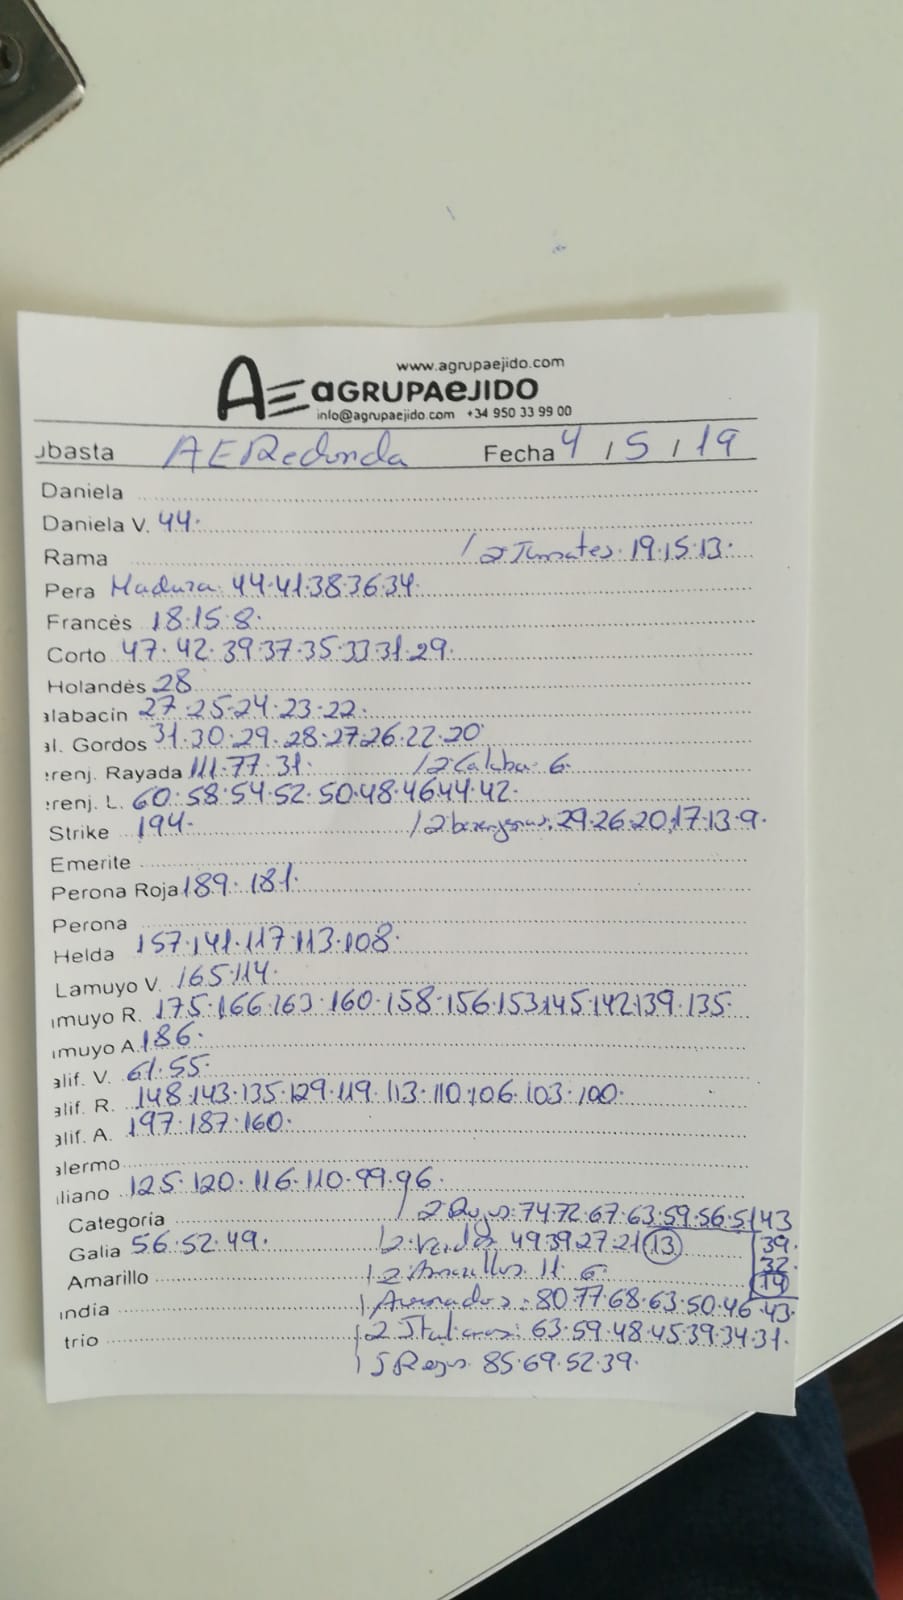 www.agrupaejido.com
AE aGRUPAeJIDO
info@agrupaejido.com +34 950 33 99 00
ubasta AE Redonda Fecha 4 / 5 / 19
Daniela
Daniela V. 44.
Rama / 2 Tomates. 19.15.13.
Pera Madura. 44.41.38.36.34.
Francés 18.15.8.
Corto 47.42.39.37.35.33.31.29.
Holandés 28
alabacín 27.25.24.23.22.
al. Gordos 31.30.29.28.27.26.22.20
erenj. Rayada 111.77.31. / 2 Calaba. 6.
erenj. L. 60.58.54.52.50.48.46.44.42.
Strike 194. / 2 berenjenas. 29.26.20.17.13.9.
Emerite
Perona Roja 189.181.
Perona
Helda 157.141.117.113.108.
Lamuyo V. 165.114.
amuyo R. 175.166.163.160.158.156.153.145.142.139.135.
amuyo A. 186.
alif. V. 61.55.
alif. R. 148.143.135.129.119.113.110.106.103.100.
alif. A. 197.187.160.
alermo
aliano 125.120.116.110.99.96.
Categoría / 2 Rojos: 74.72.67.63.59.56.51 43
Galia 56.52.49. / 2 Verdes 49.39.27.21 13 39.
32
Amarillo / 2 Amarillos 11.6. 14
india / Asurcados: 80.77.68.63.50.46.43.
trio / 2 Italianos: 63.59.48.45.39.34.31.
/ 5 Rojos 85.69.52.39.